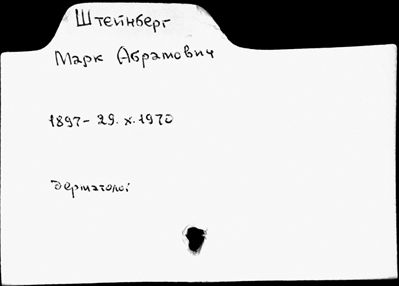 Штейнберг
Марк Абрамович
1897- 29.X.1970
дерматолог